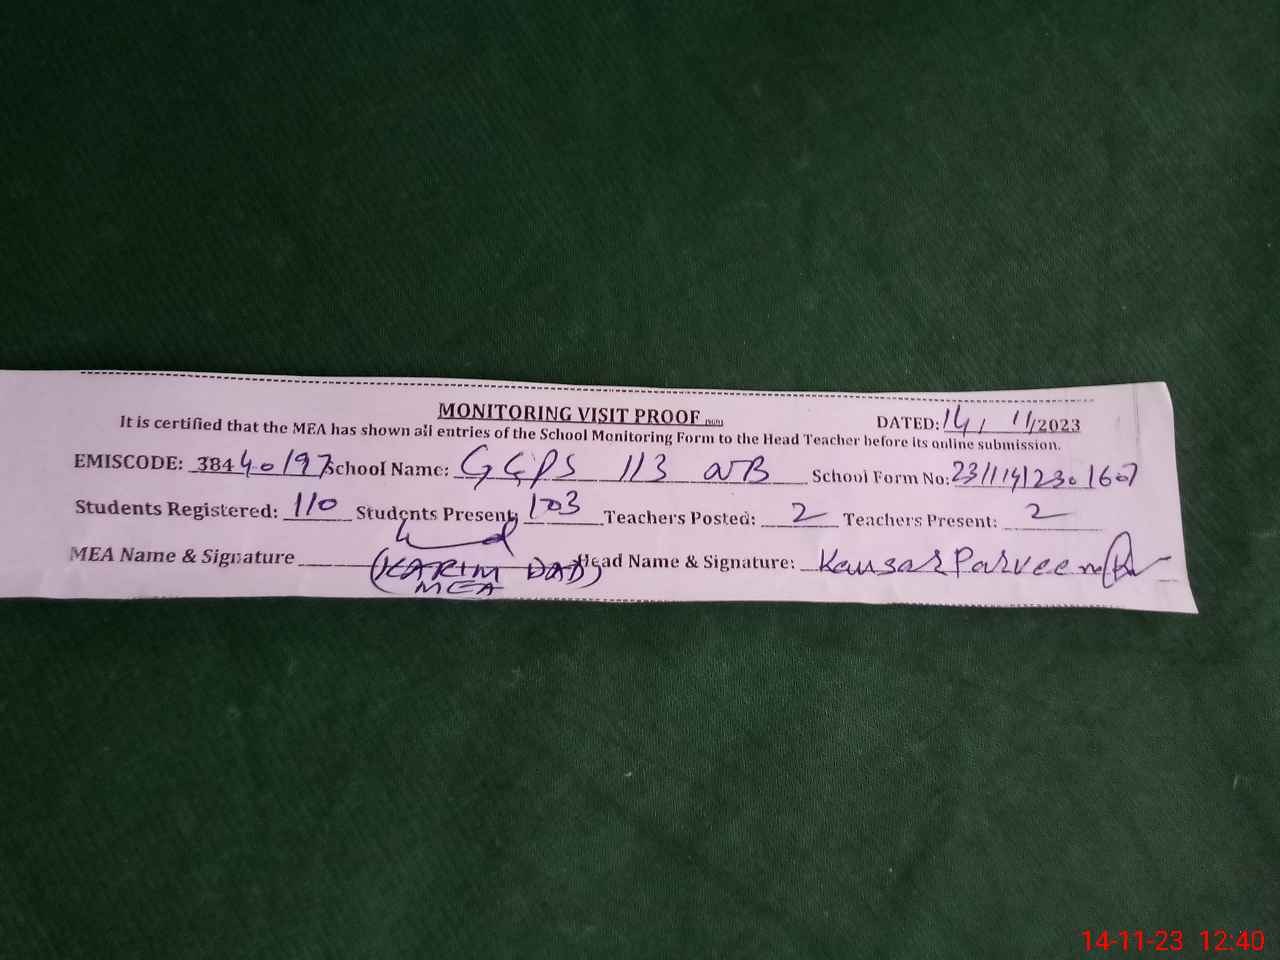 MONITORING VISIT PROOF
DATED: 14/11/2023
It is certified that the MEA has shown all entries of the School Monitoring Form to the Head Teacher before its online submission.
EMISCODE: 38440197 School Name: GGPS 113 NB School Form No:
Students Registered: 110 Students Present: 103 Teachers Posted: 2 Teachers Present: 2
MEA Name & Signature (KARIM DAD) Head Name & Signature: Kausar Parveen
MEA
14-11-23 12:40